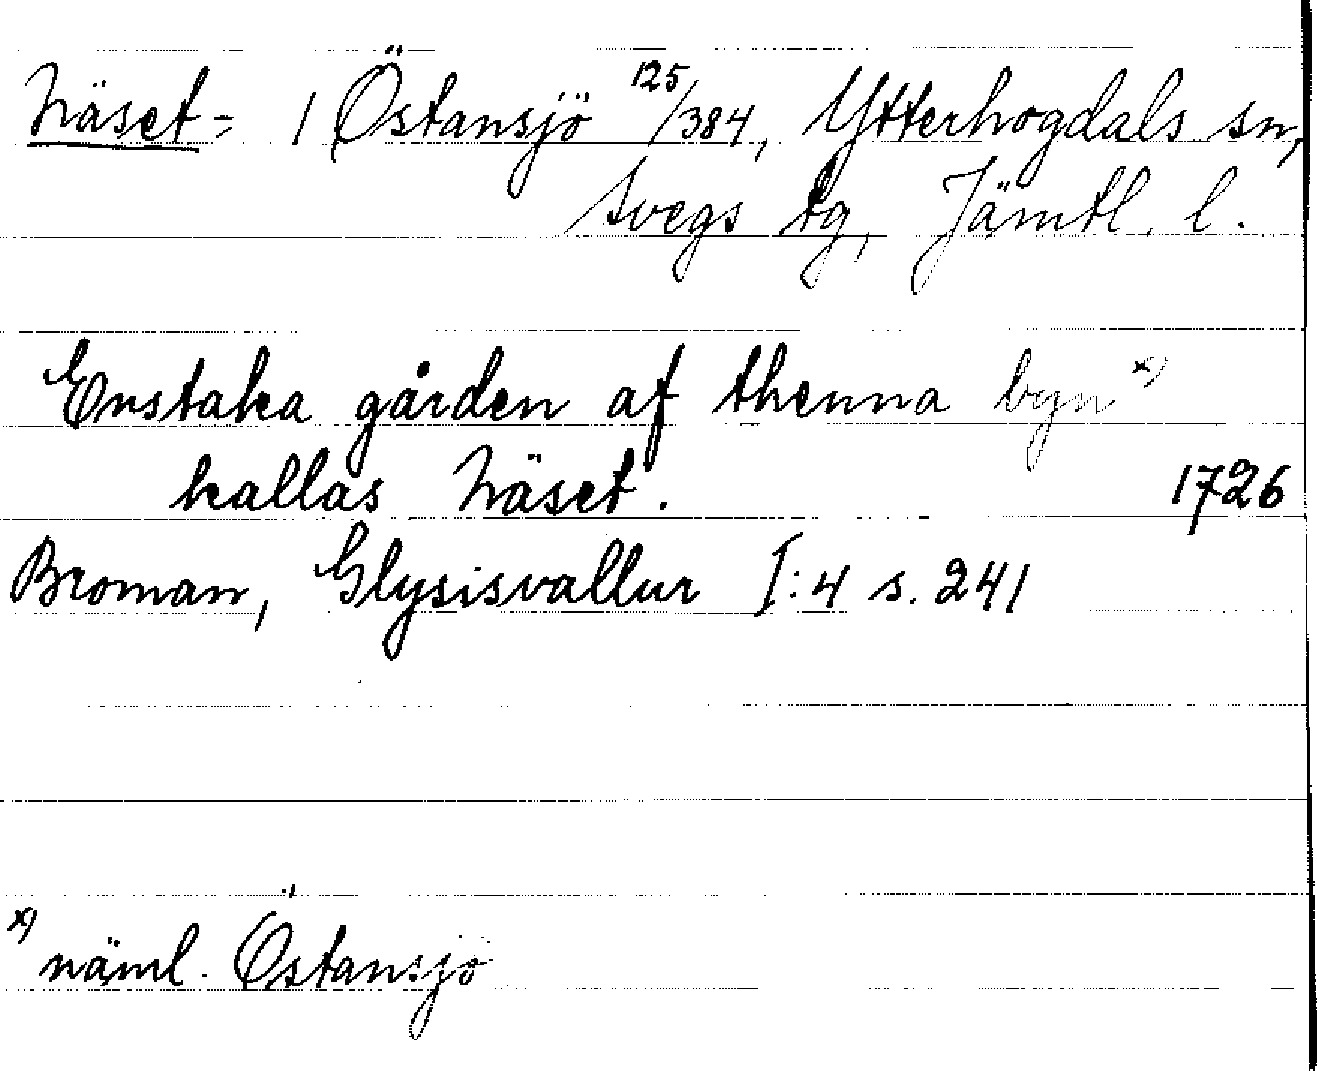 Näset = 1 Östansjö 125/384, Ytterhogdals sn,
Svegs tg, Jämtl. l.
Enstaka gården af thenna byn x)
kallas Näset. 1726
Broman, Glysisvallur I:4 s. 241
x) näml. Östansjö